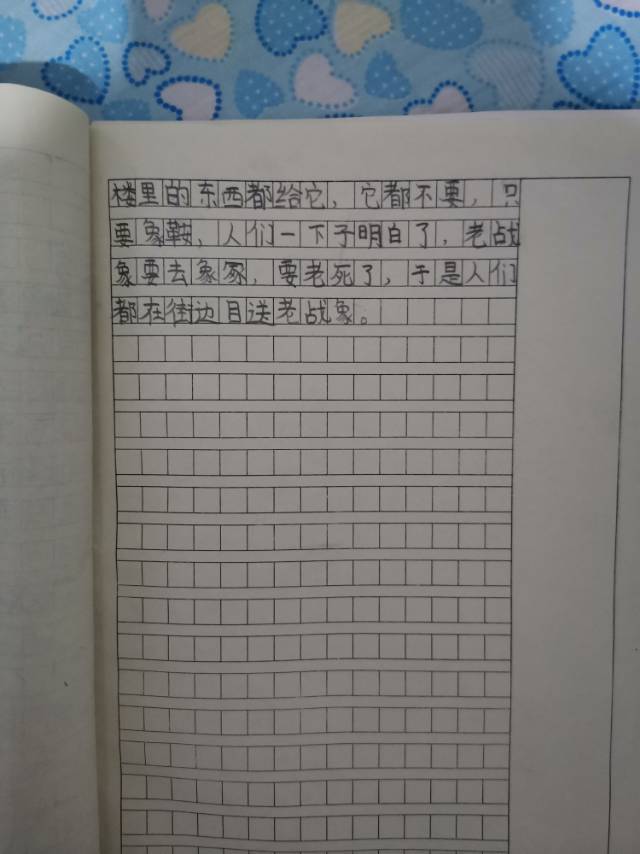 楼里的东西都给它，它都不要，只
要象鞍，人们一下子明白了，老战
象要去象冢，要老死了，于是人们
都在街边目送老战象。